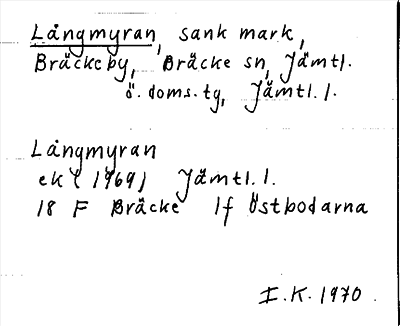 Långmyran, sank mark,
Bräckeby, Bräcke sn, Jämtl.
ö. doms. tg, Jämtl. l.
Långmyran
ek (1969) Jämtl. l.
18 F Bräcke 1f Östbodarna
I. K. 1970.